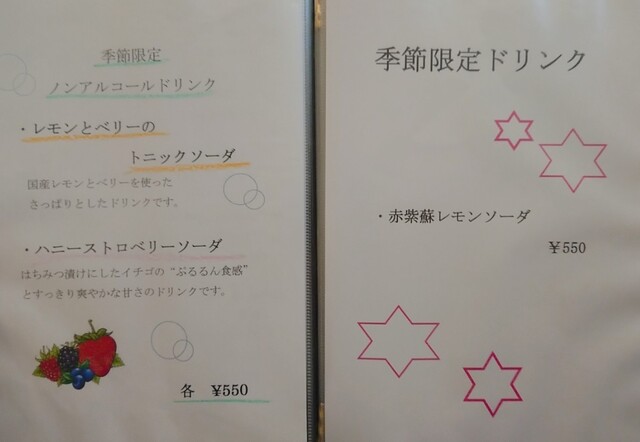 季節限定
ノンアルコールドリンク
・レモンとベリーの
トニックソーダ
国産レモンとベリーを使った
さっぱりとしたドリンクです。
・ハニーストロベリーソーダ
はちみつ漬けにしたイチゴの“ぷるるん食感”
とすっきり爽やかな甘さのドリンクです。
各 ¥550
季節限定ドリンク
・赤紫蘇レモンソーダ
¥550